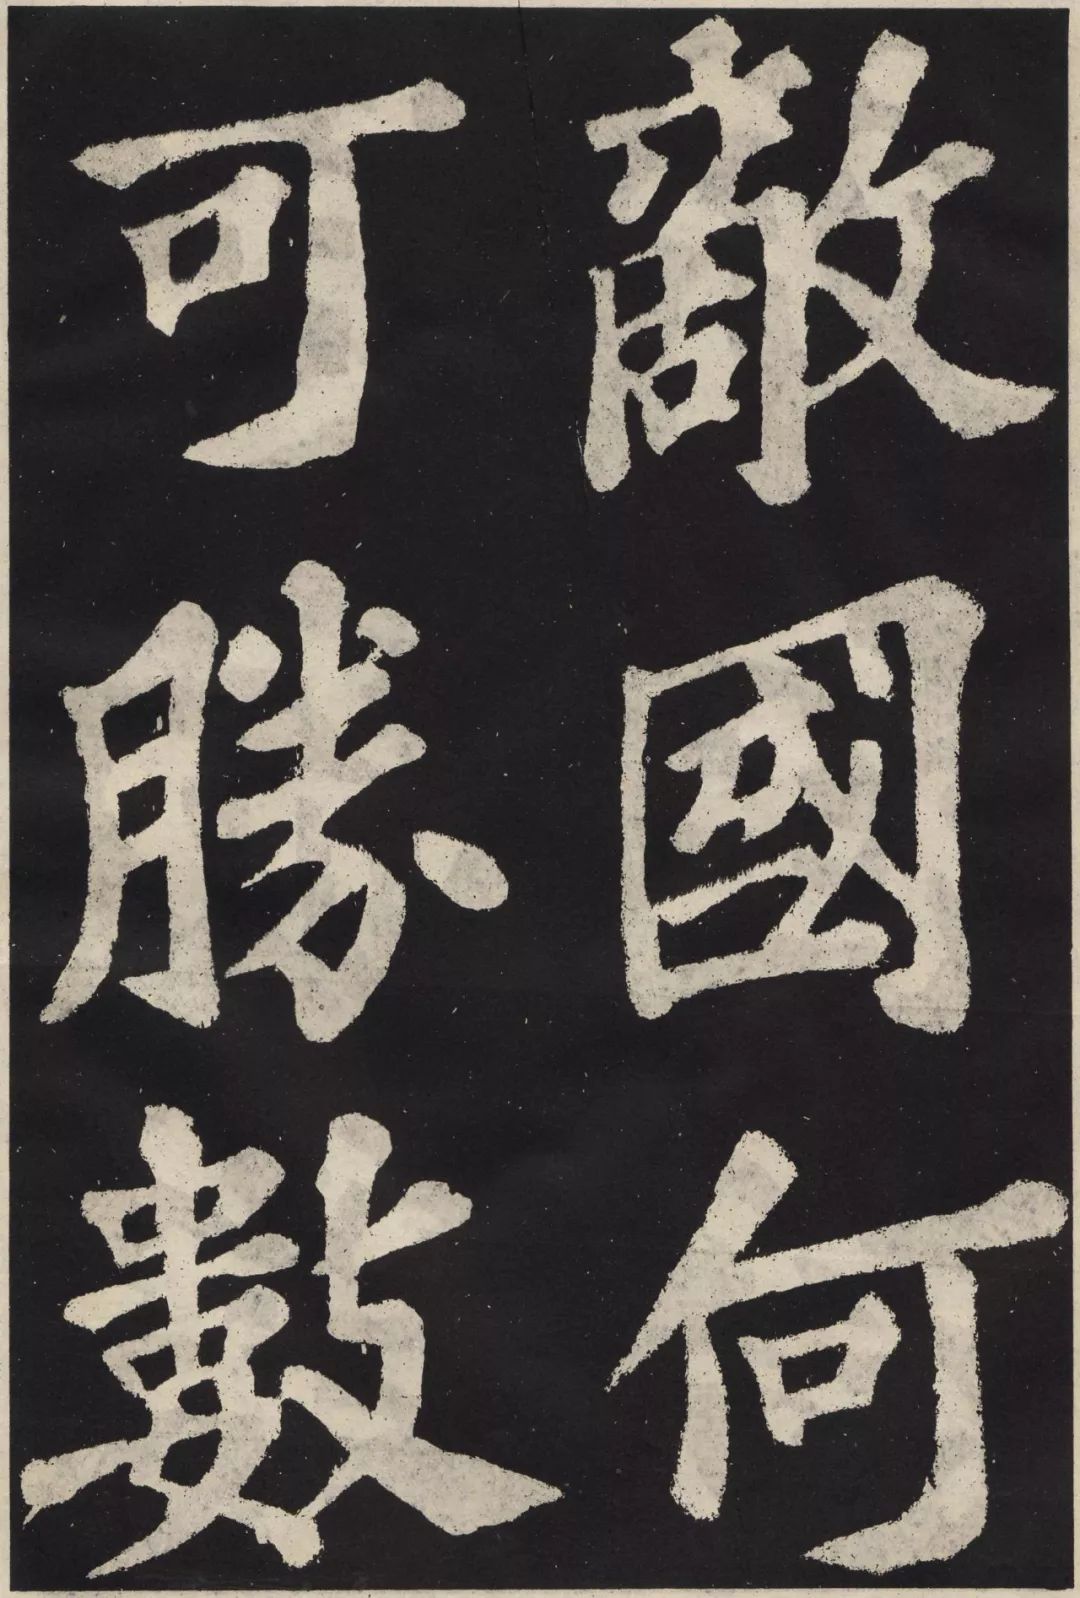 敵國何
可勝數